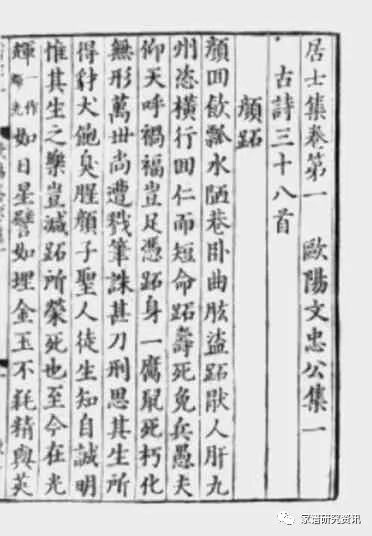 居士集卷第一 歐陽文忠公集一
古詩三十八首
顔跖
顔回飲瓢水陋巷卧曲肱盜跖猒人肝九
州恣橫行回仁而短命跖壽死免兵愚夫
仰天呼禍福豈足憑跖身一腐鼠死朽化
無形萬世尚遭戮筆誅甚刀刑思其生所
得豺犬飽臭腥顔子聖人徒生知自誠明
惟其生之樂豈減跖所榮死也至今在光
輝一作輝光如日星譬如埋金玉不耗精與英
家谱研究资讯